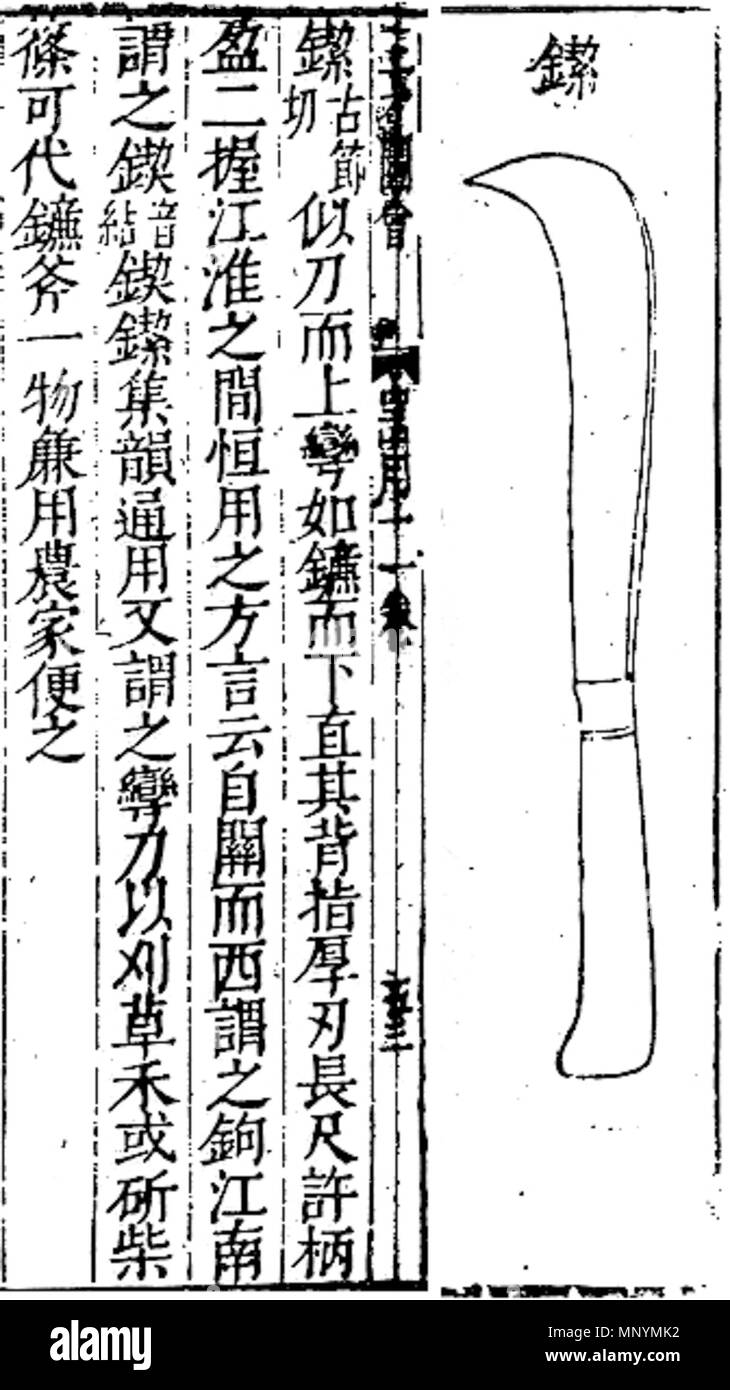 鐭
三才圖會
器用十一卷
鐭古節切似刀而上彎如鐮而下直其背指厚刃長尺許柄
盈二握江淮之間恒用之方言云自關而西謂之鉤江南
謂之鍥音結鍥鐭集韻通用又謂之彎刀以刈草禾或斫柴
篠可代鐮斧一物兼用農家便之
alamy
Image ID: MNYMK2
www.alamy.com